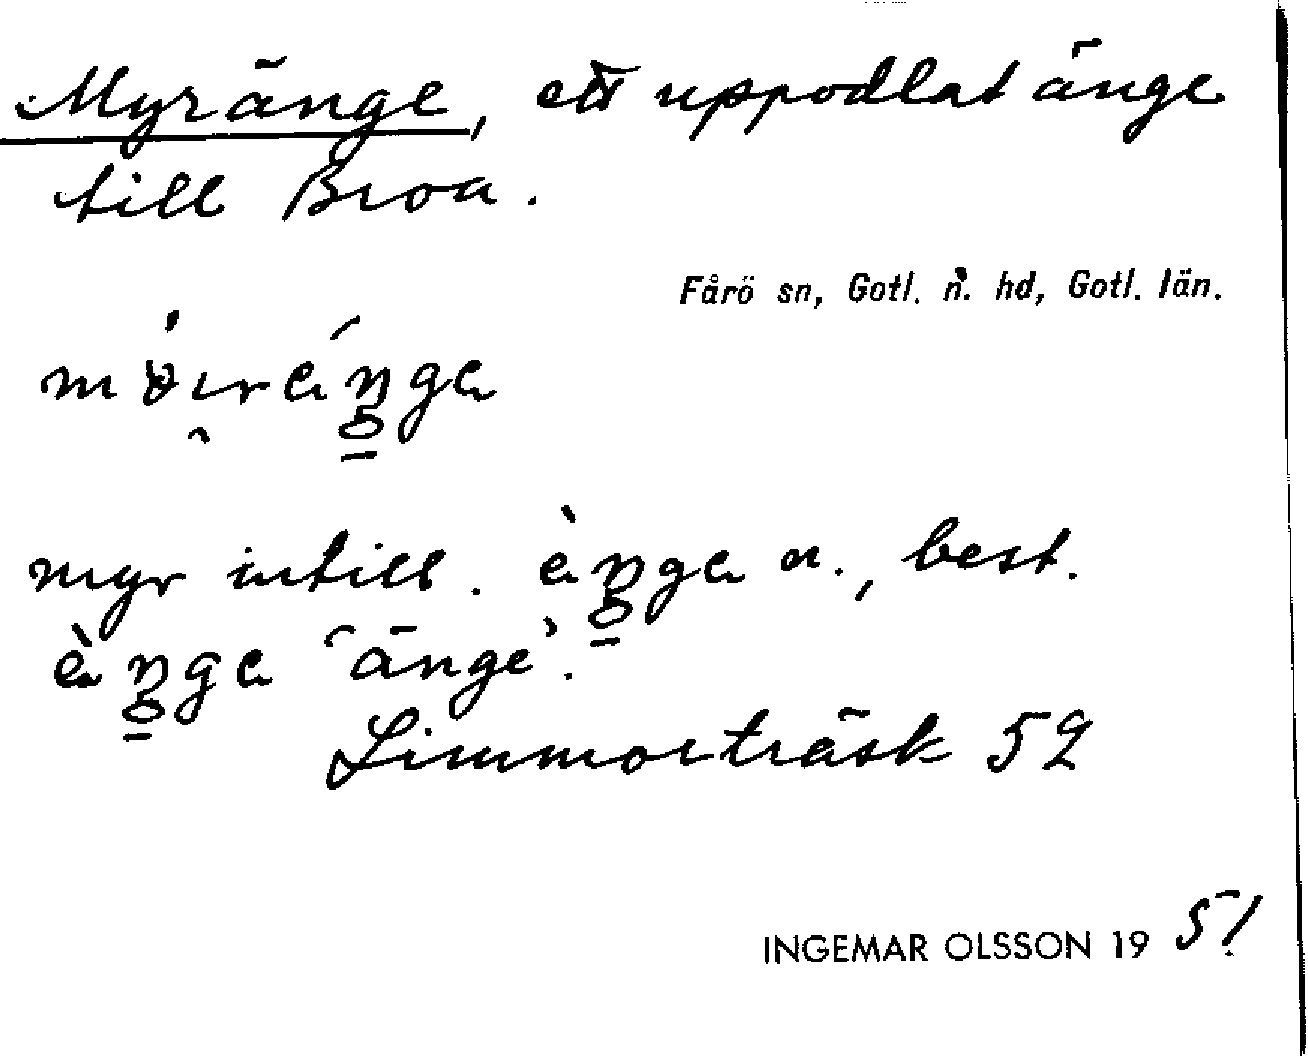 Myränge, ett uppodlat änge
till Broa.
Fårö sn, Gotl. n. hd, Gotl. län.
myr intill. èŋga n., best.
èŋga 'änge'.
Limmorträsk 52
INGEMAR OLSSON 19 51